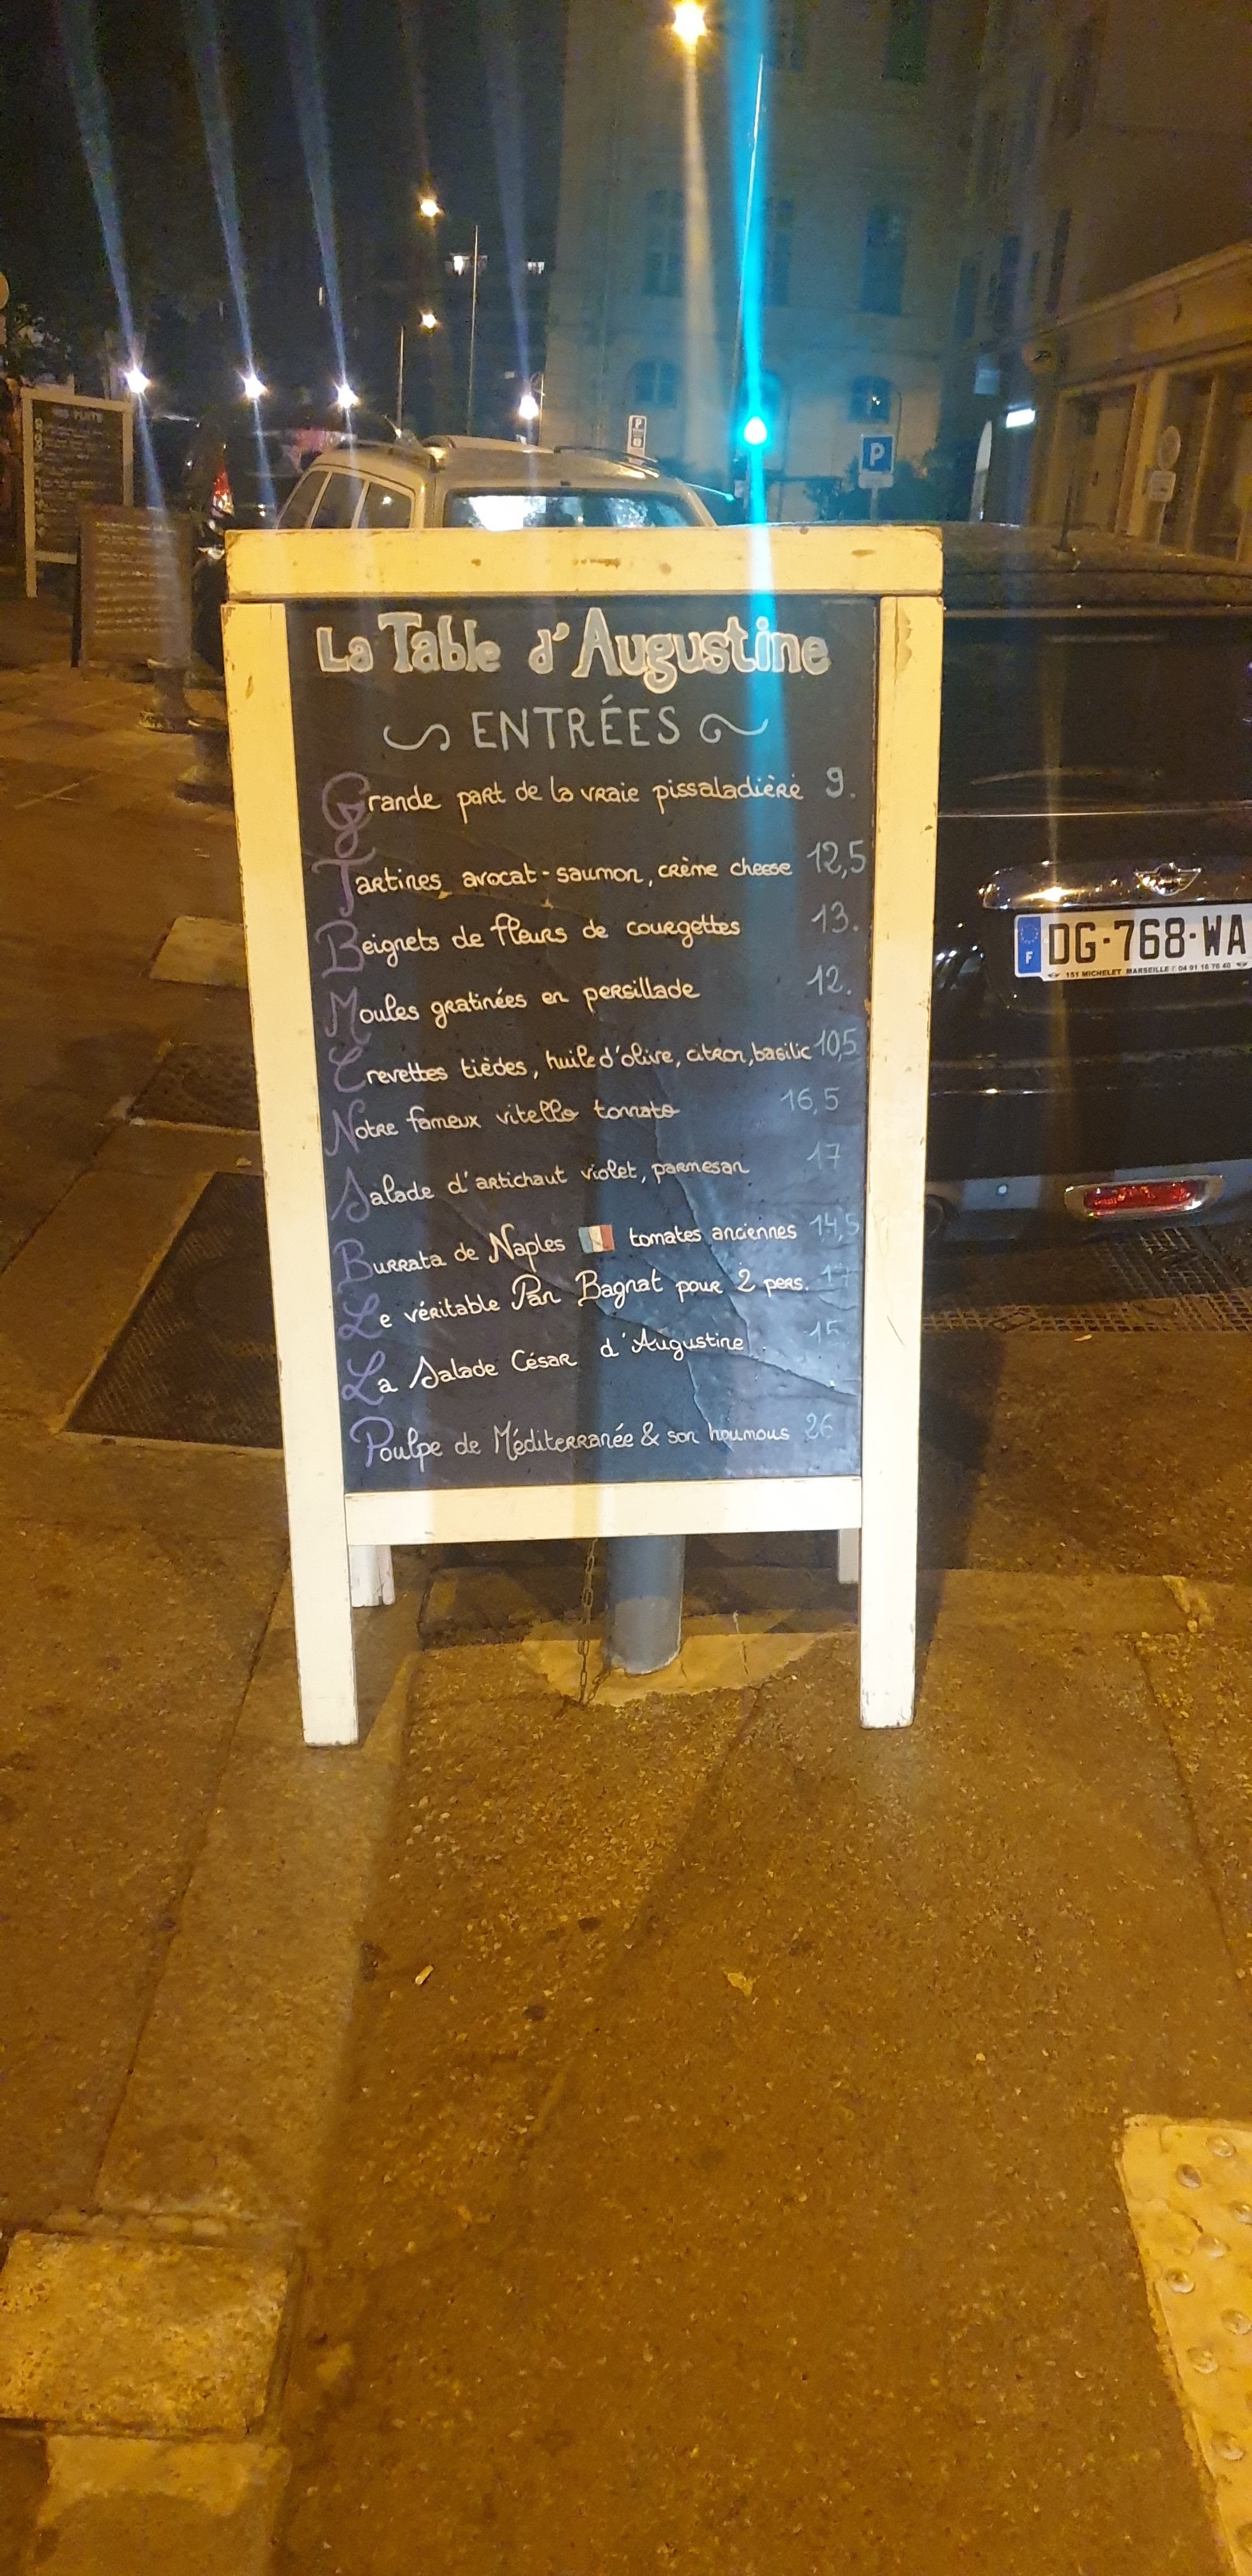 La Table d'Augustine
ENTRÉES
Grande part de la vraie pissaladière 9.
Tartines avocat-saumon, crème cheese 12,5
Beignets de fleurs de courgettes 13.
Moules gratinées en persillade 12.
Crevettes tièdes, huile d'olive, citron, basilic 10,5
Notre fameux vitello tonnato 16,5
Salade d'artichaut violet, parmesan 17
Burrata de Naples tomates anciennes 14,5
Le véritable Pan Bagnat pour 2 pers. 17
La Salade César d'Augustine 15
Poulpe de Méditerranée & son houmous 26
P
P
F
DG-768-WA
151 MICHELET MARSEILLE